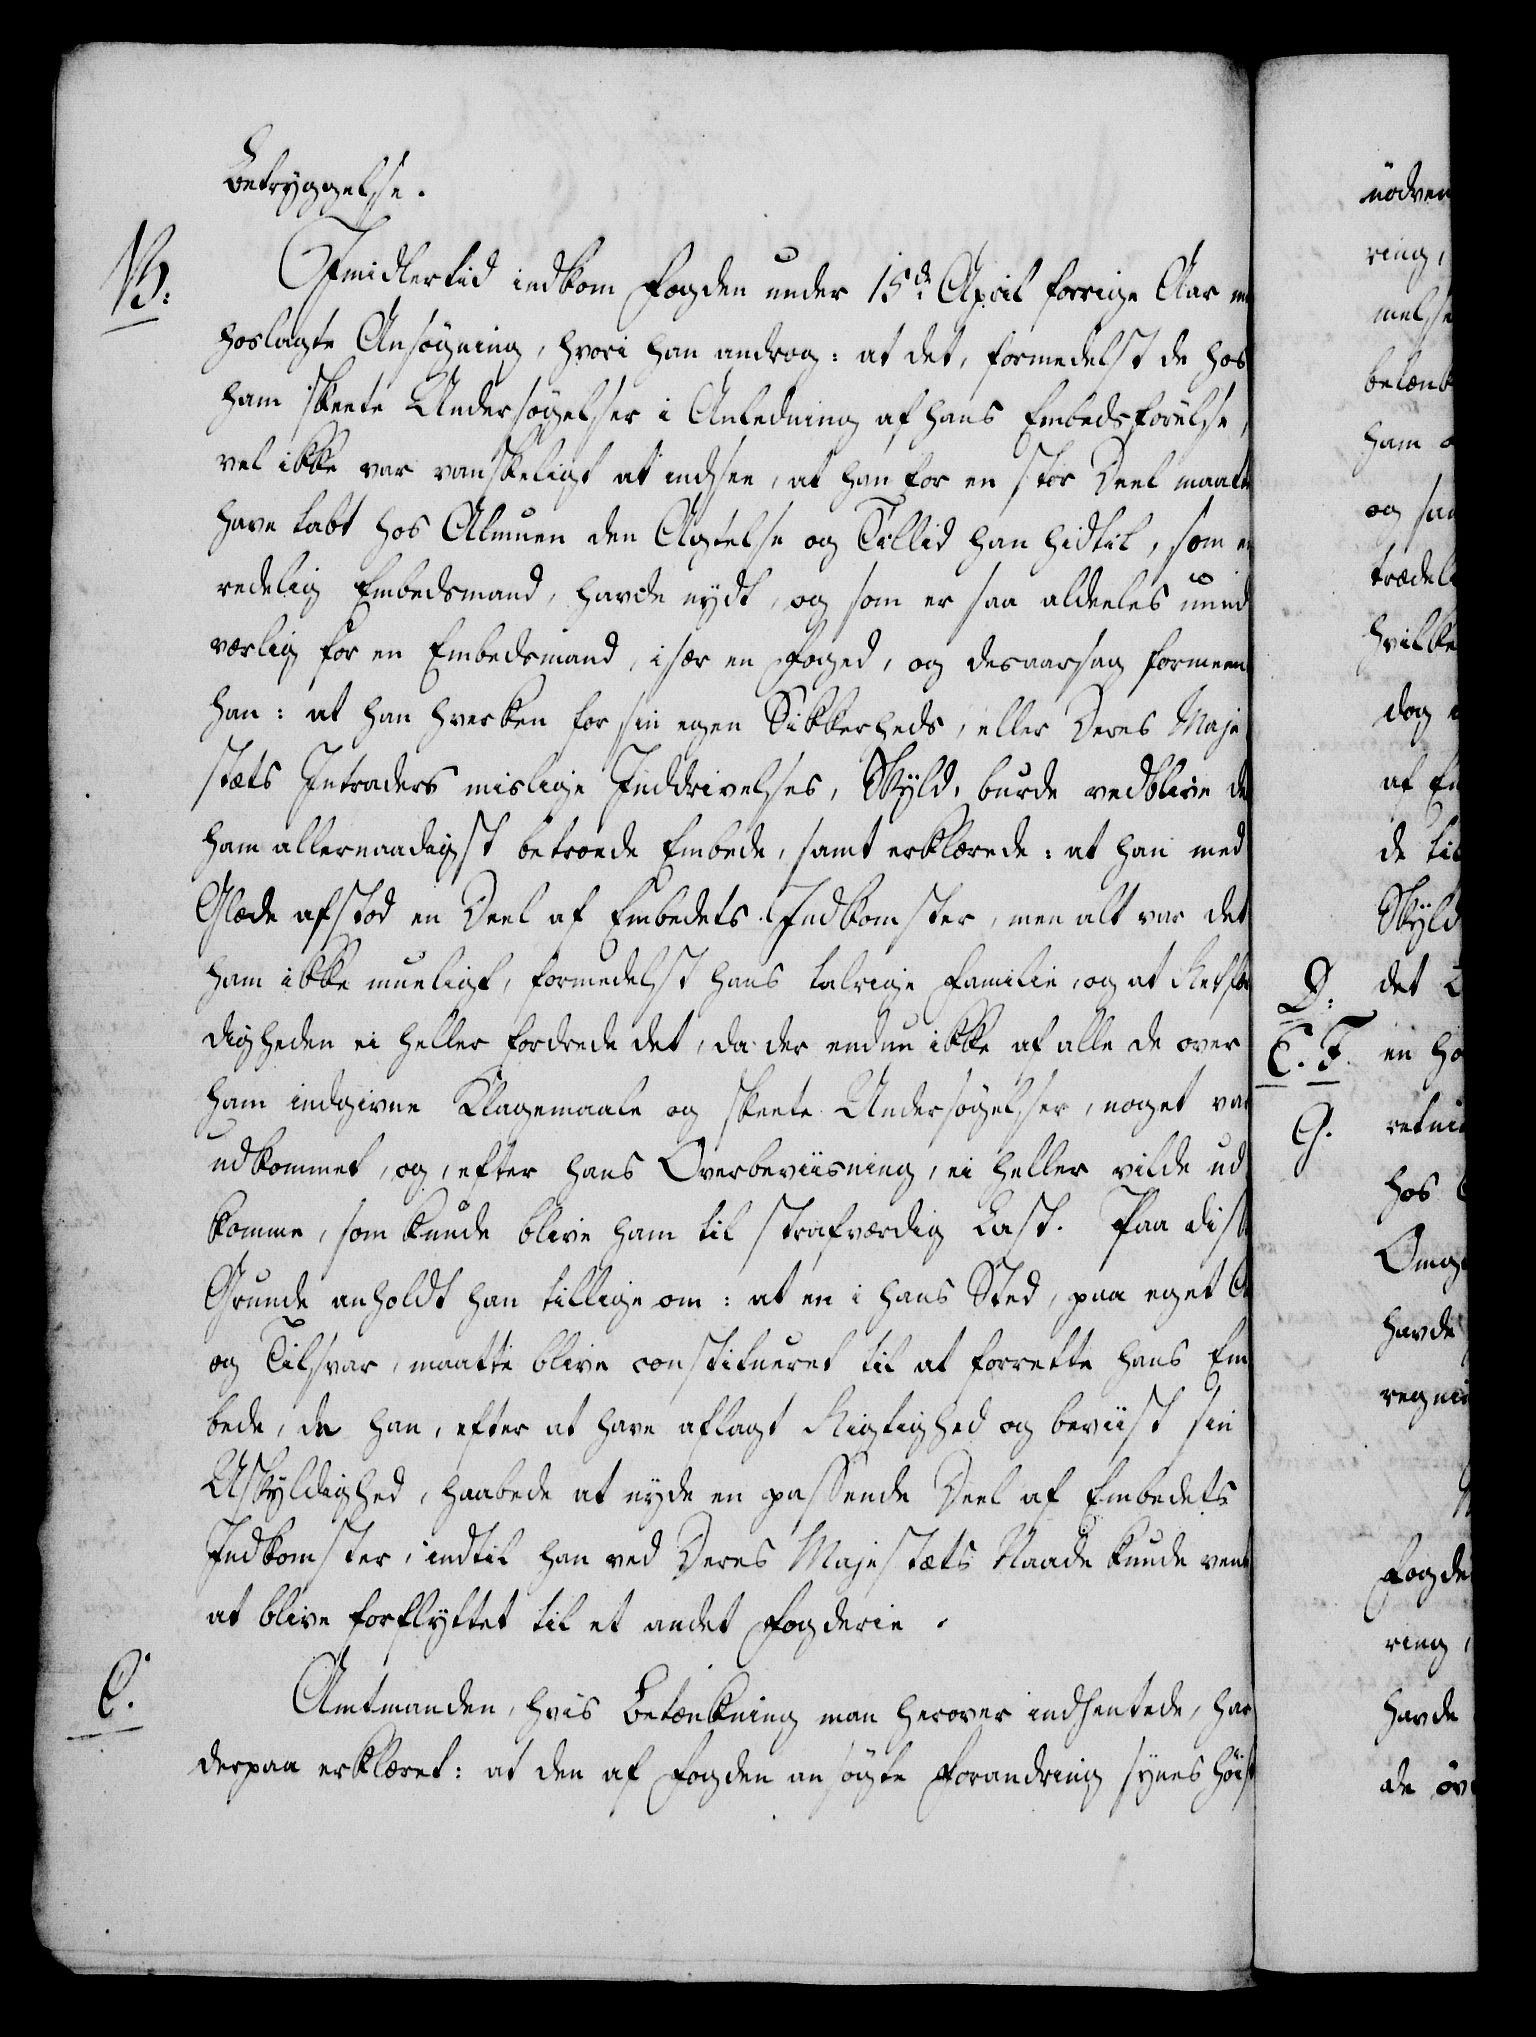 Betryggelse.
B:
Imidlertid indkom Fogden under 15de April forrige Aar
hoslagte Ansøgning, hvori han androg: at det, formedelst de hos
ham skeete Undersøgelser i Anledning af hans Embedsførelse,
vel ikke var vanskeligt at indsee, at han for en stor Deel maatte
have tabt hos Almuen den Agtelse og Tillid han hidtil, som en
redelig Embedsmand, havde nydt, og som er saa aldeeles uund
værlig for en Embedsmand, især en Foged, og desaarsag formeen
han: at han hverken for sin egen Sikkerheds, eller Deres Maje
stæts Intraders mislige Inddrivelses, Skyld, burde vedblive de
ham allernaadigst betroede Embede, samt erklærede: at han med
Glæde afstod en Deel af Embedets Indkomster, men alt var det
ham ikke mueligt, formedelst hans talrige Familie, og at Retfær
digheden ei heller fordrede det, da der endnu ikke af alle de over
ham indgivne Klagemaale og skeete Undersøgelser, noget var
udkommet, og, efter hans Overbeviisning, ei heller vilde ud
komme, som kunde blive ham til strafværdig Last. Paa disse
Grunde anholdt han tillige om: at en i hans Sted, paa eget
og Tilsvar, maatte blive constitueret til at forrette hans Em
bede, da han, efter at have aflagt Rigtighed og beviist sin
Uskyldighed, haabede at nyde en passende Deel af Embedets
Indkomster, indtil han ved Deres Majestæts Naade kunde vente
at blive forflyttet til et andet Fogderie.
C.
Amtmanden, hvis Betænkning man herover indhentede, har
derpaa erklæret: at den af Fogden ansøgte Forandring synes høist
nødven
ring,
melse
betænk
ham
og saa
trædel
hvilke
dog
af Em
de til
Skyld
D:
det
E. F.
en ho
G.
retni
hos
Omg
havde
regni
Fogde
ring,
havde
de ov